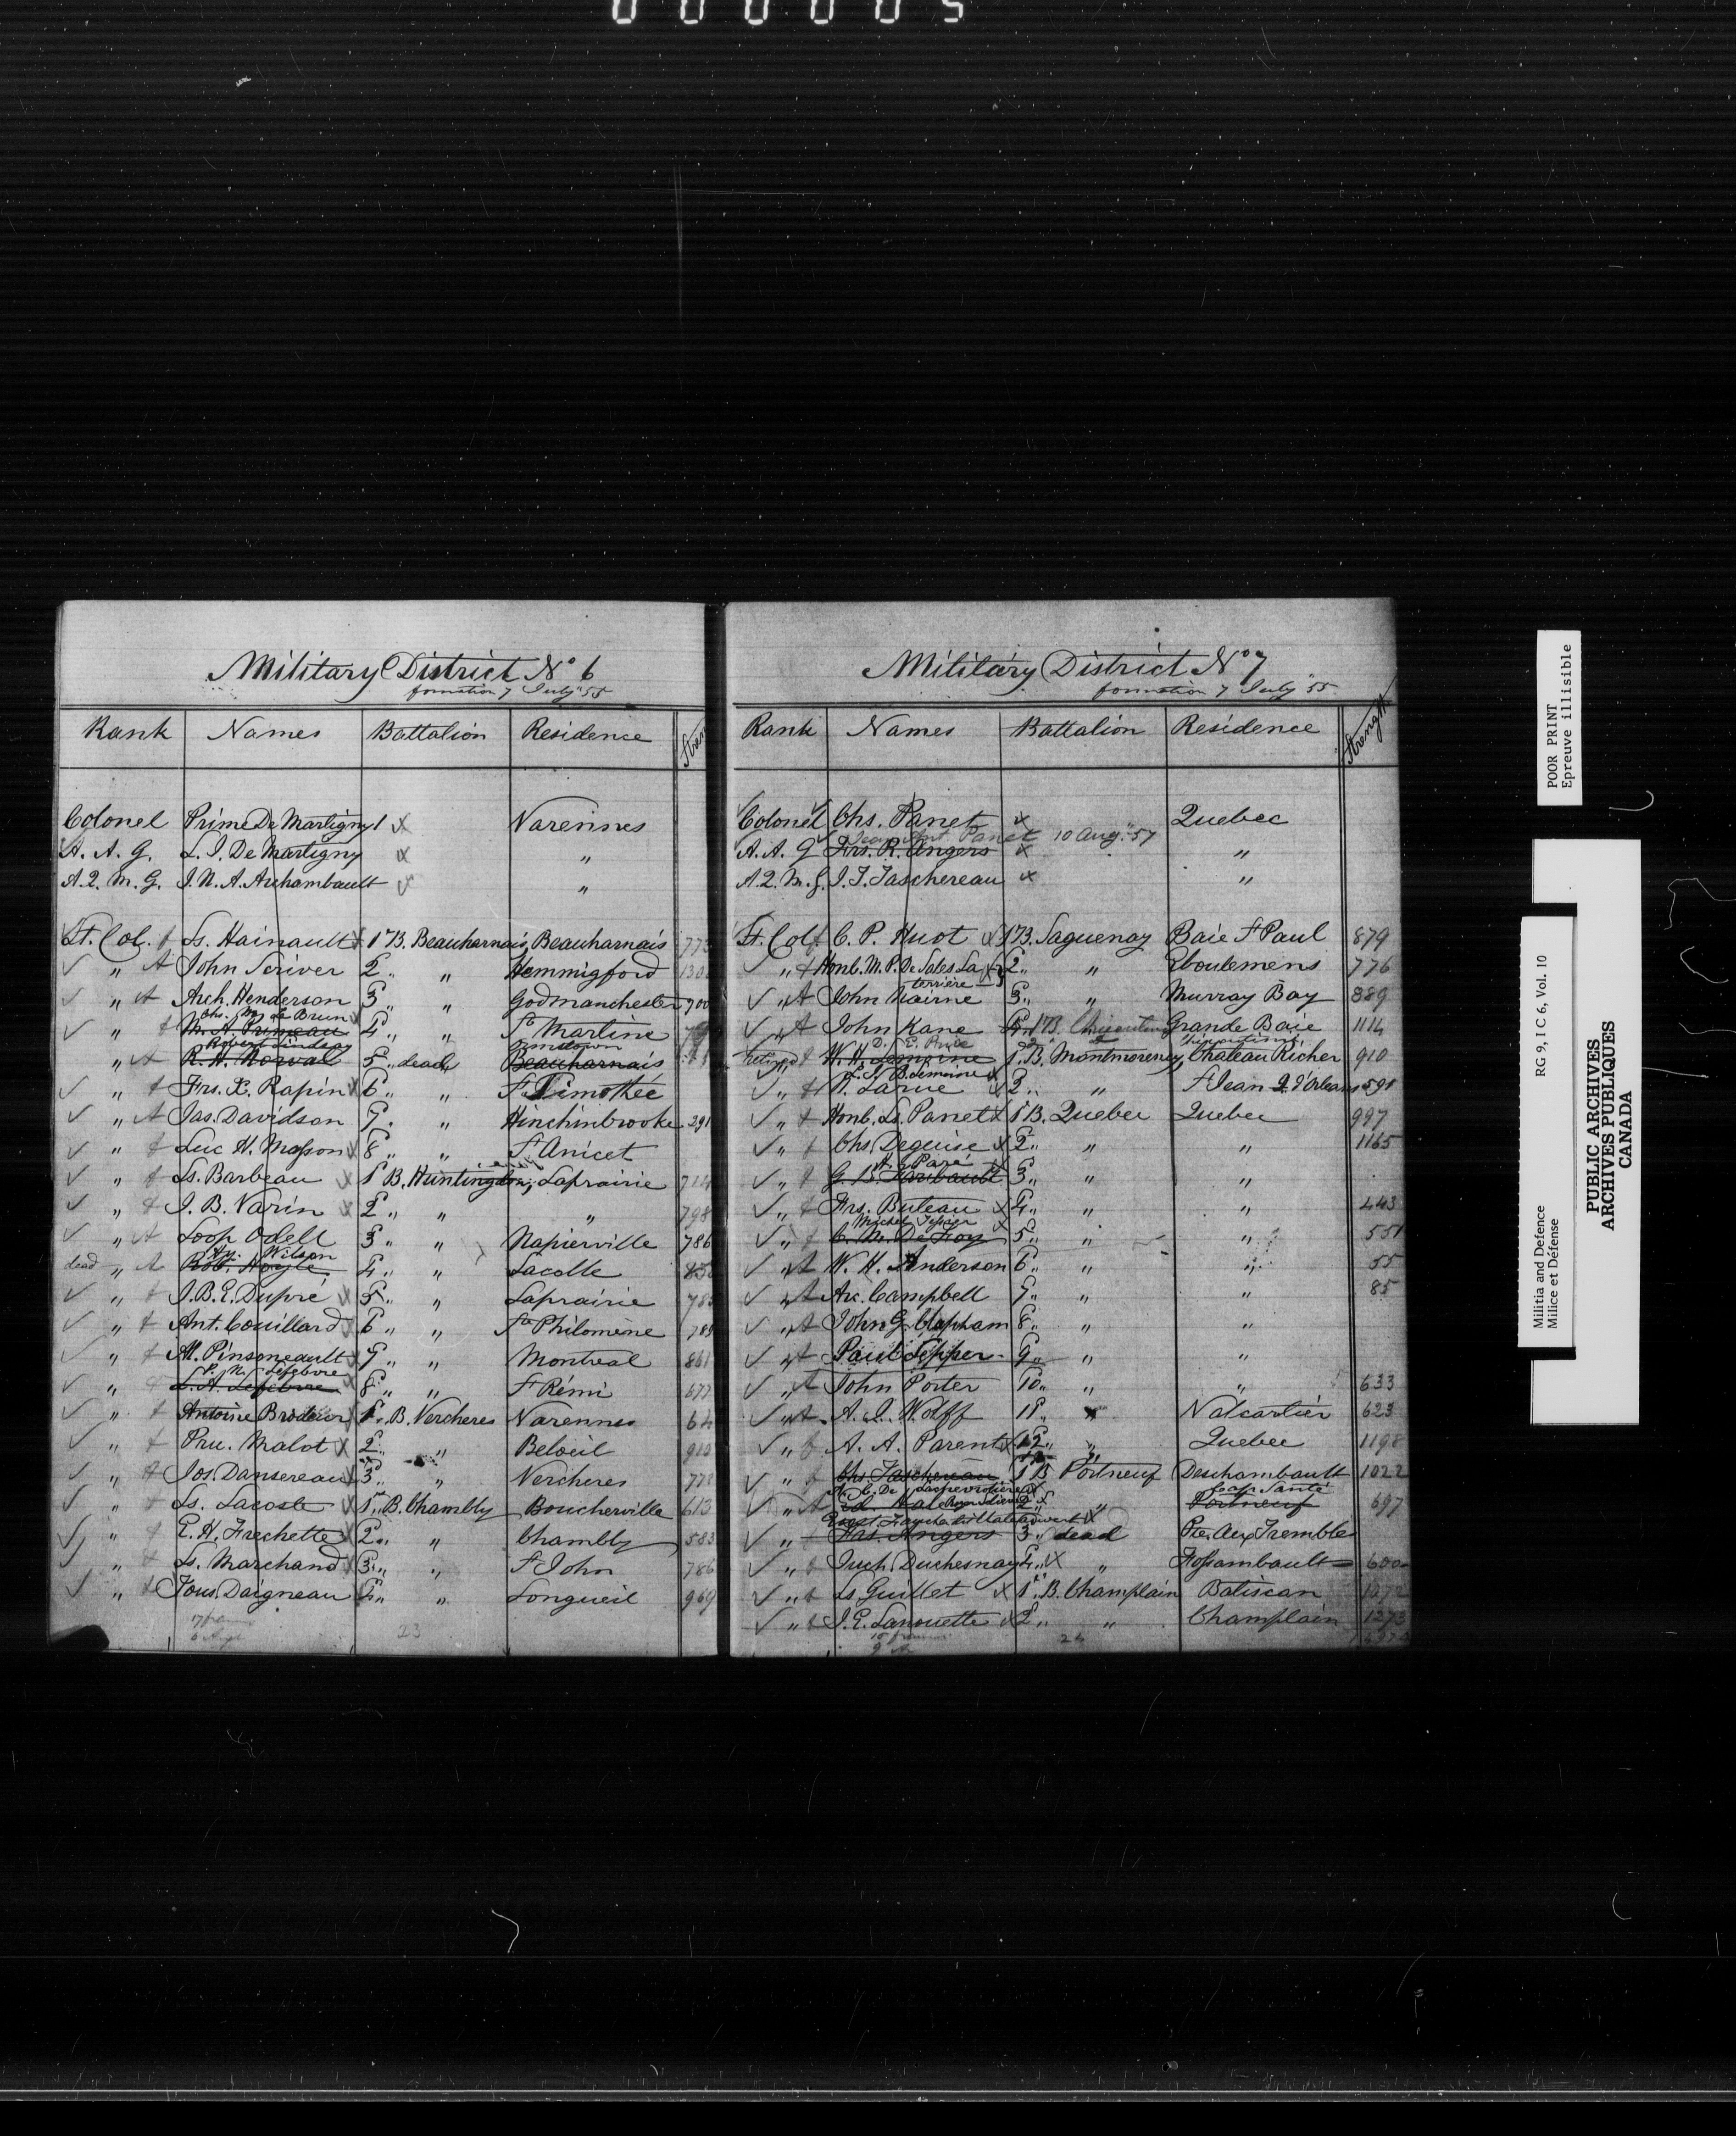 000005
Military District No 6
formation 7 July '55
Rank Names Battalion Residence
Colonel Prime De Martigny x Varennes
A. A. G. L. J. De Martigny x "
A. Q. M. G. J. N. A. Archambault x "
Lt. Col. Ls. Hainault x 1st B. Beauharnais Beauharnais 773
" John Scriver 2 " " Hemmigford
" Arch. Henderson 3 " " Godmanchester 700
Chs. M. Le Brun
" M. A. Primeau 4 " " Ste Martine
Robert Lindsay
" R. H. Norval 5 " dead " Beauharnais
" Frs. X. Rapin x 6 " " St Timothée
" Jas. Davidson 7 " " Hinchinbrooke 291
" Luc H. Masson x 8 " " St Anicet
" Ls. Barbeau x 1 B. Huntingdon, Laprairie 714
" J. B. Varin x 2 " " " 798
" Loop Odell 3 " " Napierville 786
Wilson
dead " Robt. Hoyle 4 " " Lacolle
" J. B. E. Dupre x 5 " " Laprairie
" Ant. Couillard x 6 " " Ste Philomène
" M. Pinsoneault x 7 " " Montreal 861
Lefebvre
" L. A. Lefebvre x 8 " " St Rémi 677
" Antoine Brodeur x 1 B. Vercheres Varennes
" Pru. Malot x 2 " " Beloeil 910
" Jos. Dansereau x 3 " " Vercheres 778
" Ls. Lacoste x 1st B. Chambly Boucherville 613
" E. H. Frechette x 2 " " Chambly 583
" Ls. Marchand x 3 " " St John 786
" Tous. Daigneau 4 " " Longueil 969
23
Military District No 7
formation 7 July '55
Rank Names Battalion Residence Strength
Colonel Chs. Panet x Quebec
Panet 10 Aug. '57
A. A. G Frs. R. Angers x "
A. Q. M. G. J. T. Taschereau x "
Lt. Col. C. P. Huot x 1st B. Saguenay Baie St Paul 879
" Honb. M. P. De Sales La 2 " " Eboulemens 776
terrière
" John Nairne 3 " " Murray Bay 889
" John Kane 1st B. Chicoutimi Grande Baie 1114
D. E. Price
retired W. H. Lemoine 1st B. Montmorency, Chateau Richer 910
B. Lemoine
" N. Larue x 2 " " St Jean I. d'Orleans 591
" Honb. Ls. Panet x 1st B. Quebec Quebec 997
" Chs. Deguise x 2 " " " 1165
Paré
" G. B. Faribault 3 " " "
" Frs. Buteau x 4 " " " 443
Michel Tessier
" C. M. DeFoy 5 " " " 551
" W. H. Anderson 6 " " " 55
" Arc. Campbell 7 " " " 85
" John G. Clapham 8 " " "
" Paul Lepper 9 " " "
" John Porter 10 " " " 633
" A. J. Wolff 11 " " Valcartier 623
" A. A. Parent x 12 " " Quebec 1198
" Chs. Taschereau 1st B Portneuf Deschambault 1022
Cap Santé
" Ed. Hale 2 " " Portneuf 697
" Fas. Angers 3 " dead Pte. Aux Trembles
" Juch. Duchesnay 4 " x " Fossambault 600
" Ls Guillet x 1st B. Champlain Batiscan 1072
" J. E. Lanouette x 2 " " Champlain 1273
24
POOR PRINT
Epreuve illisible
RG 9, I C 6, Vol. 10
Militia and Defence
Milice et Défense
PUBLIC ARCHIVES
ARCHIVES PUBLIQUES
CANADA